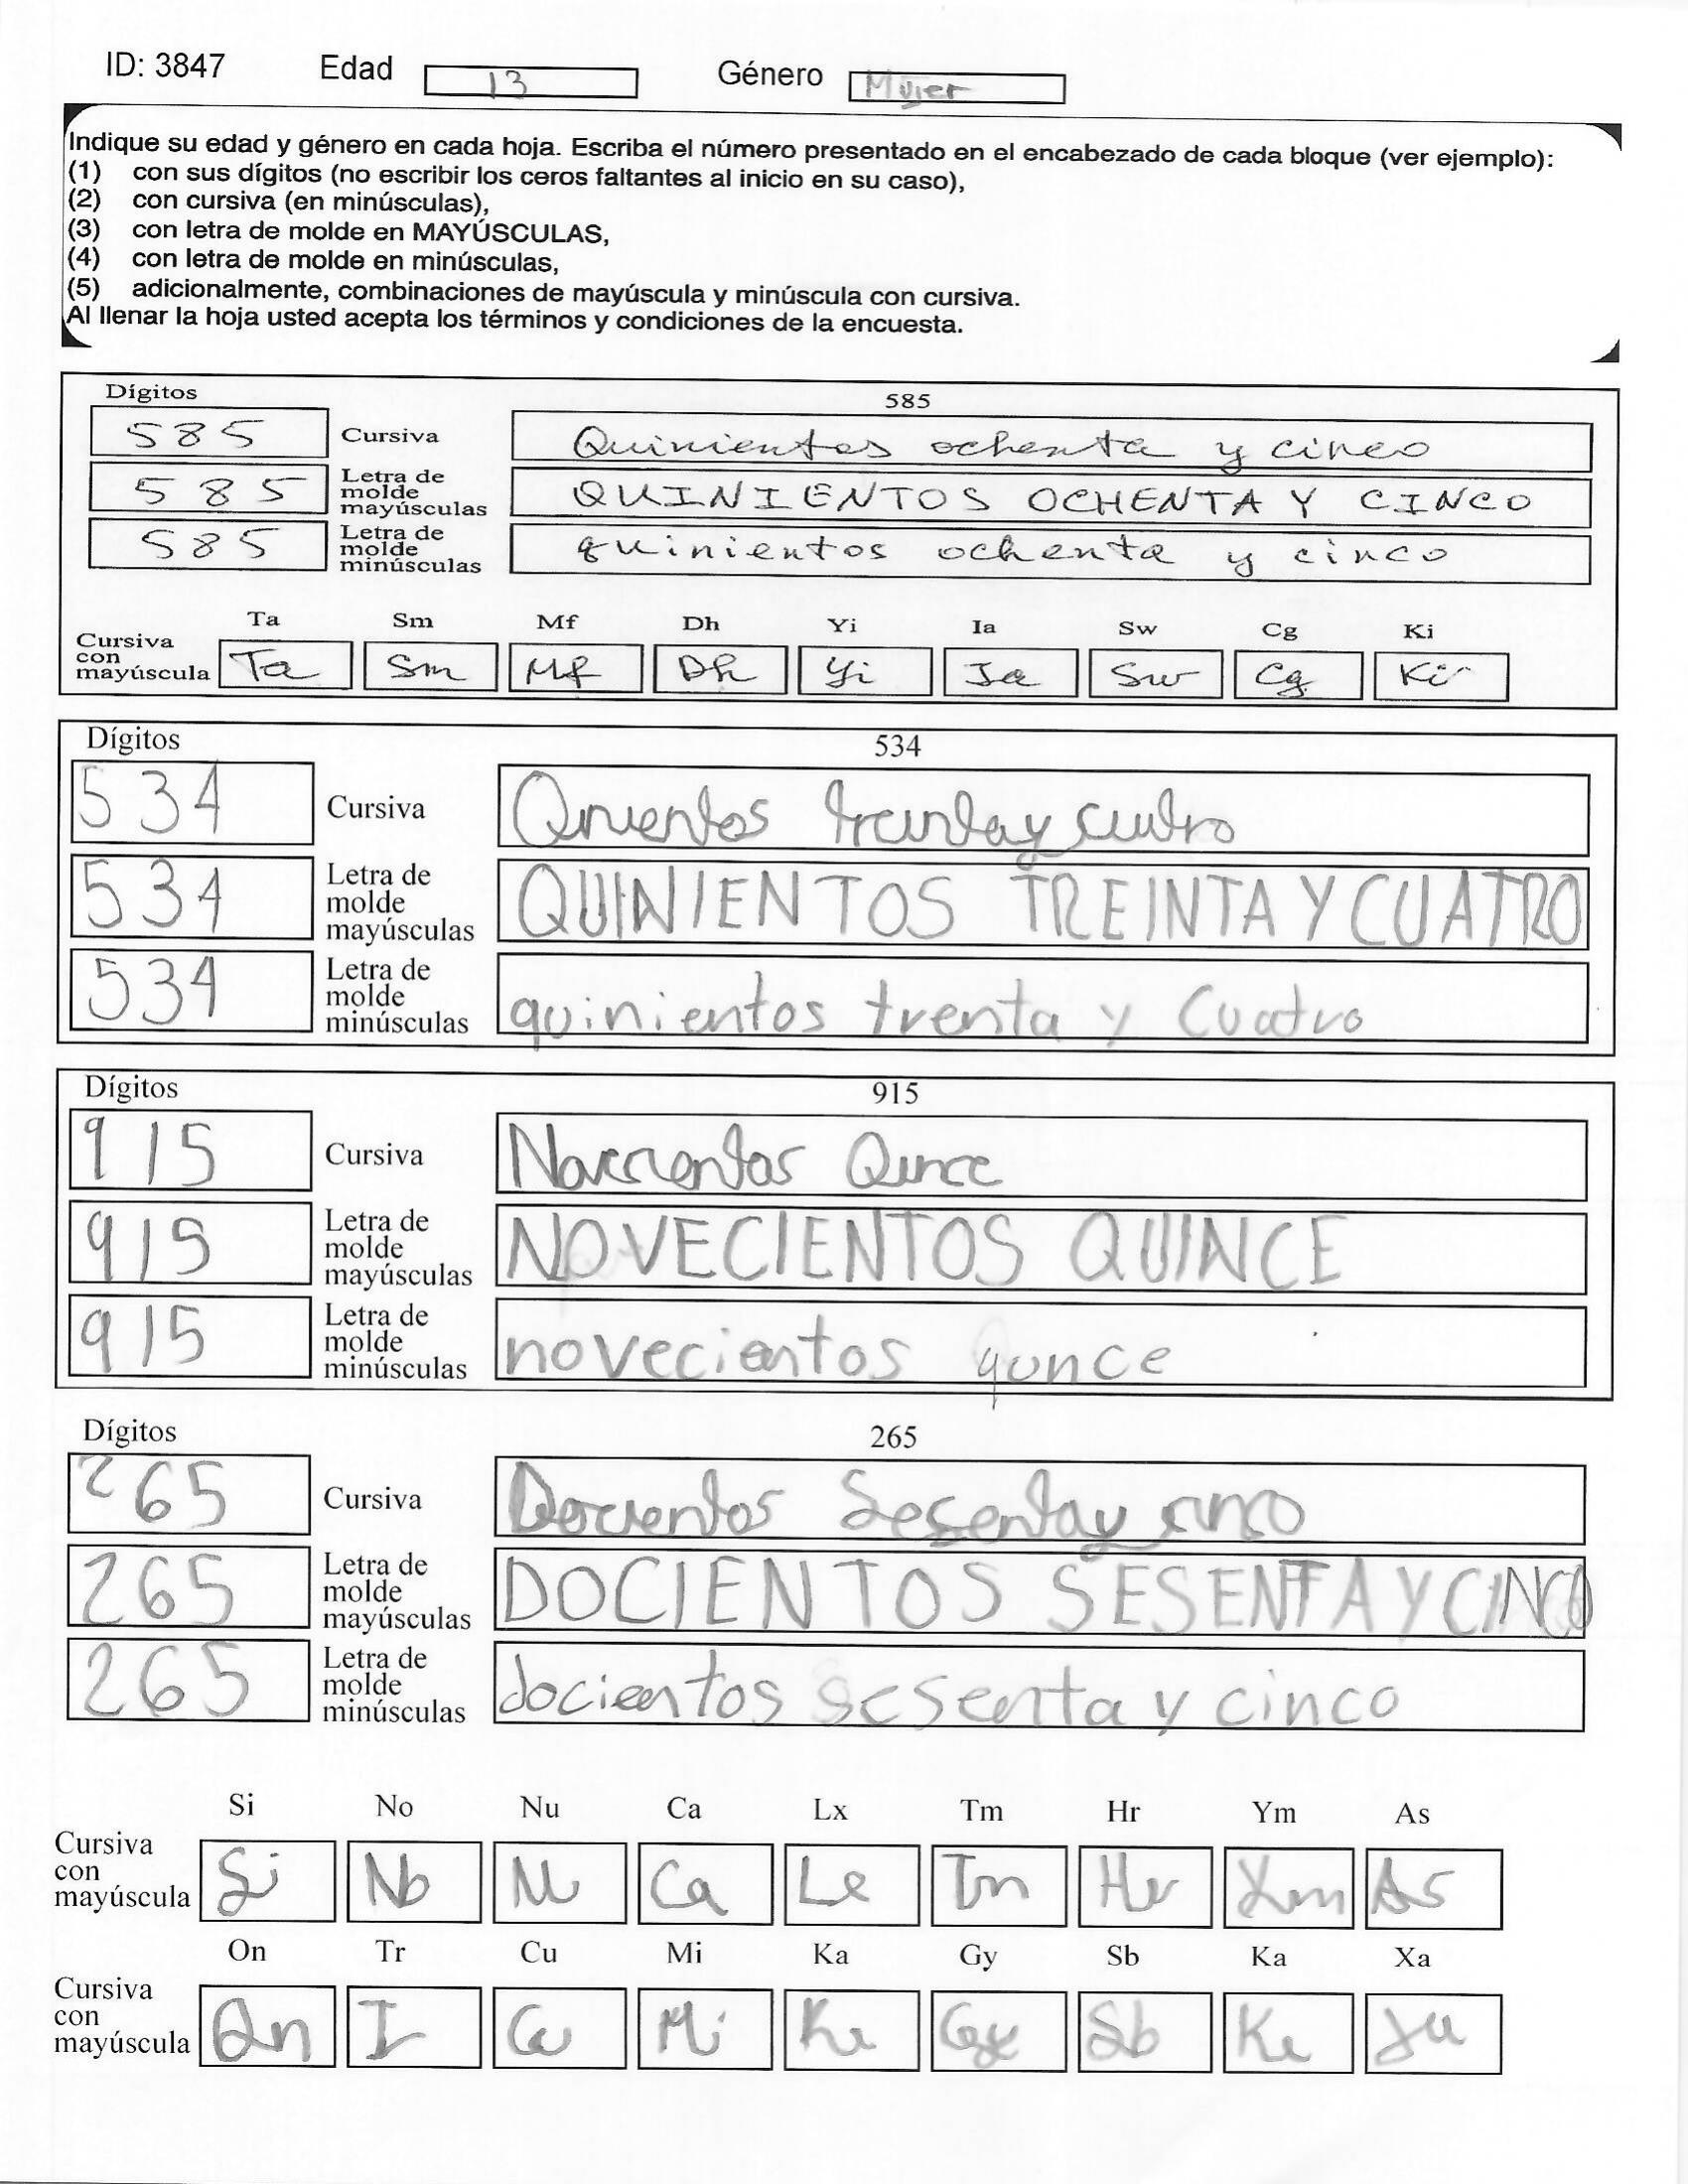 ID: 3847 Edad 13 Género Mujer
Indique su edad y género en cada hoja. Escriba el número presentado en el encabezado de cada bloque (ver ejemplo):
(1) con sus dígitos (no escribir los ceros faltantes al inicio en su caso),
(2) con cursiva (en minúsculas),
(3) con letra de molde en MAYÚSCULAS,
(4) con letra de molde en minúsculas,
(5) adicionalmente, combinaciones de mayúscula y minúscula con cursiva.
Al llenar la hoja usted acepta los términos y condiciones de la encuesta.
Dígitos 585
585 Cursiva Quinientos ochenta y cinco
585 Letra de molde mayúsculas QUINIENTOS OCHENTA Y CINCO
585 Letra de molde minúsculas quinientos ochenta y cinco
Ta Sm Mf Dh Yi Ia Sw Cg Ki
Cursiva con mayúscula Ta Sm Mf Dh Yi Ia Sw Cg Ki
Dígitos 534
534 Cursiva treinta y
534 Letra de molde mayúsculas QUINIENTOS TREINTA Y CUATRO
534 Letra de molde minúsculas quinientos trenta y Cuatro
Dígitos 915
915 Cursiva
915 Letra de molde mayúsculas NOVECIENTOS QUINCE
915 Letra de molde minúsculas novecientos qunce
Dígitos 265
265 Cursiva Docientos Sesenta y
265 Letra de molde mayúsculas DOCIENTOS SESENTA Y CINCO
265 Letra de molde minúsculas docientos sesenta y cinco
Si No Nu Ca Lx Tm Hr Ym As
Cursiva con mayúscula Si No Ca Le Tm Hr Ym As
On Tr Cu Mi Ka Gy Sb Ka Xa
Cursiva con mayúscula On Cu Mi Ka Gy Sb Ka